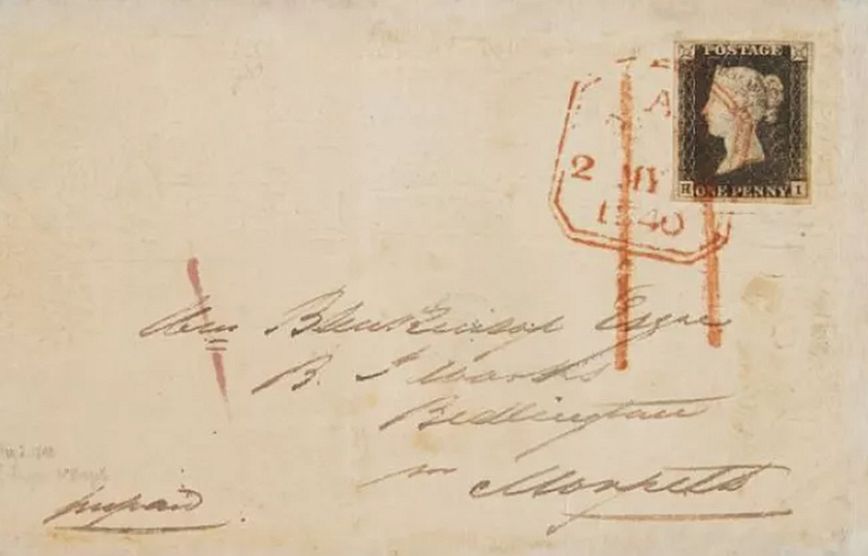 POSTAGE
H ONE PENNY I
A
2 MY
1840
Wm Blenkinsop Esqre
B. I Works
Bedlington
nr Morpeth
prepaid